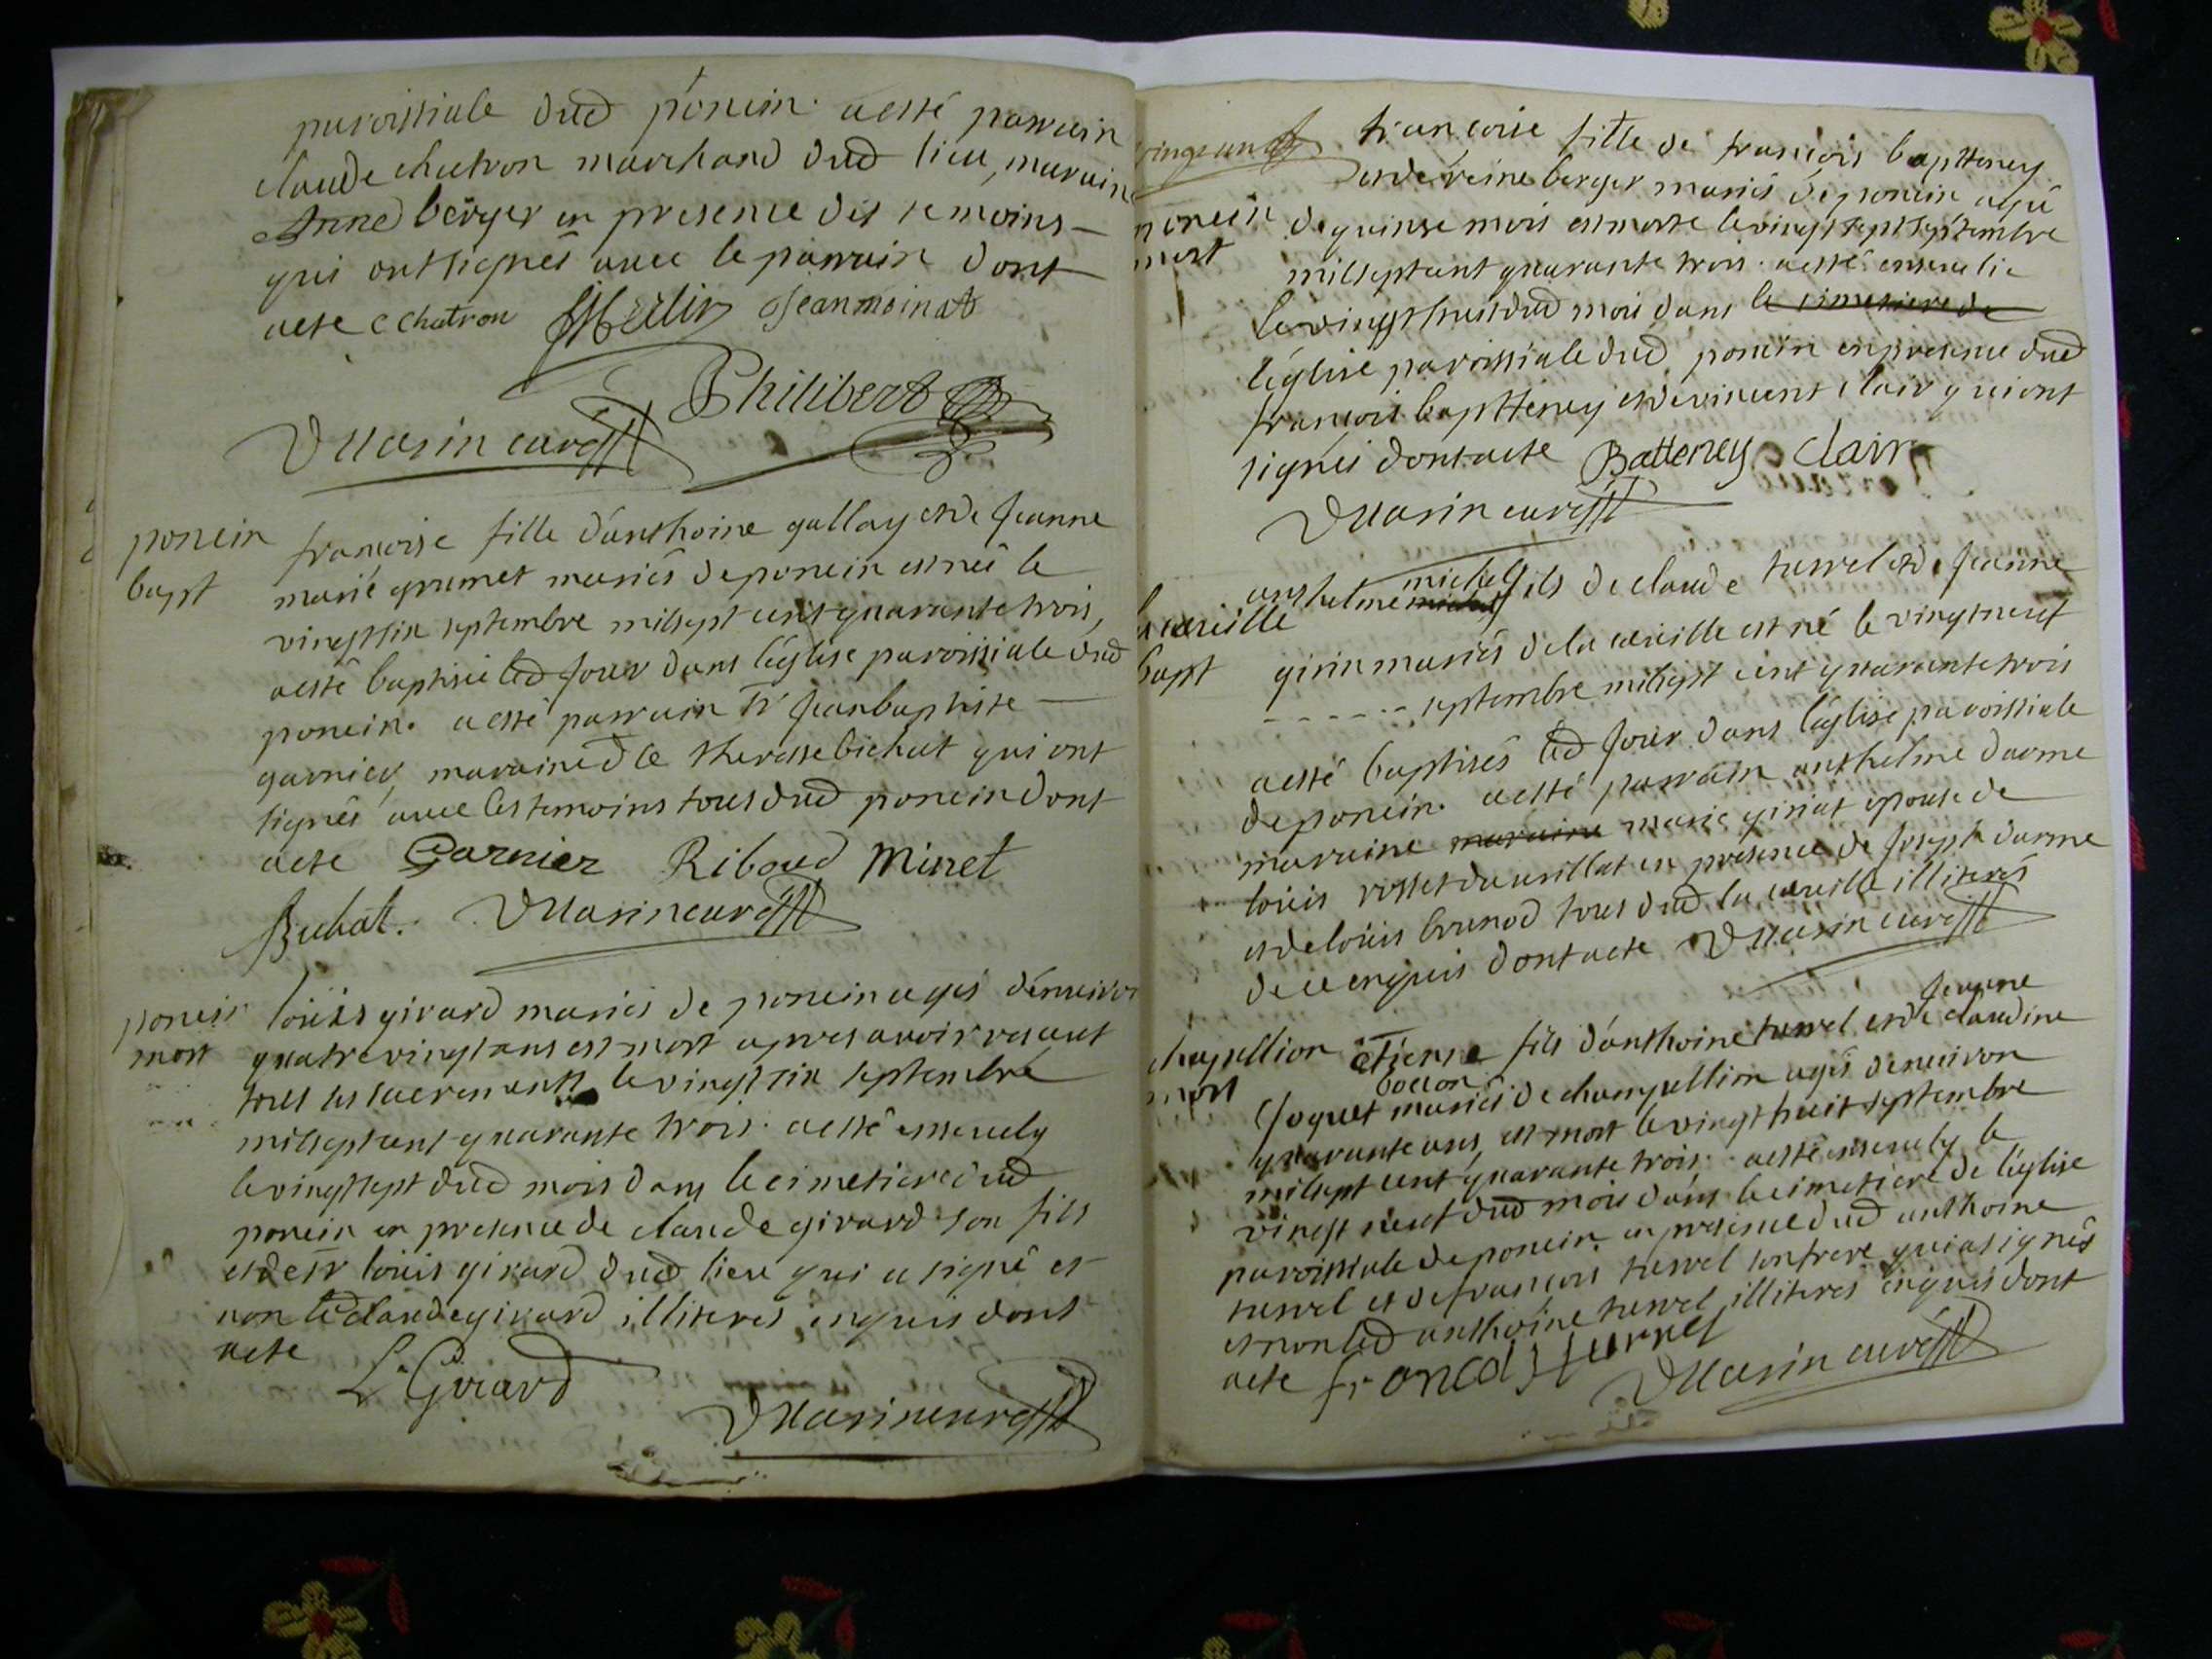 paroissiale dud poncin. aesté parrain
claude chatron marchand dud lieu, maraine
Anne berger en presence des temoins
qui ont signés avec le parrain dont
acte c chatron Jeanmoinat
Philibert
Duasin curé
poncin
bapt
francoise fille d'anthoine gallay et de Jeanne
marie grumet mariés de poncin est neé le
vingtsix septembre milsept cent quarante trois,
aesté baptisée led jour dans l'église paroissiale dud
poncin. a esté parrain sr Jeanbaptiste
garnier, maraine dlle theresse bichat qui ont
signés avec les temoins tous dud poncin dont
acte Garnier Riboud Minet
Bichat. Duasin curé
poncin
mort
loüis girard mariés de poncin agés d'environ
quatre vingt ans est mort apres avoir reçeut
tous les sacrements le vingt six septembre
milseptcent quarante trois. aesté ensevely
le vingtsept dud mois dans le cimetiere dud
poncin en presence de claude girard son fils
et de sr loüis girard dud lieu qui a signé et
non led claude girard illiteres, enquis dont
acte L. Girard
Duasin curé
poncin
mort
francoise fille de francois baptteney
et de reine berger mariés de poncin agée
de quinze mois est morte le vingt sept septembre
milseptcent quarante trois. aesté ensevelie
le vingt huit dud mois dans le cimetiere de
l'église paroissiale dud poncin en presence dud
francois baptteney et de vincent clair qui ont
signés dont acte Batteney Clair
Duasin curé
la cueille
bapt
anthelme michel fils de claude turrel et de Jeanne
girin mariés de la cueille est né le vingt neuf
septembre milsept cent quarante trois
aesté baptisés led jour dans l'église paroissiale
de poncin. aesté parrain anthelme darme
maraine maraine marie giriat epouse de
loüis rosset daurillat en presence de Joseph darme
et de loüis brunod tous dud la cueille illiterés
de ce enquis dont acte Duasin curé
chapellion
mort
Etienne fils d'anthoine turrel et de Jeanne claudine
Joquet bocson mariés de champellion agés d'environ
quarante ans, est mort le vingt huit septembre
milsept cent quarante trois. aesté ensevely le
vingt neuf dud mois dans le cimetiere de l'église
paroissiale de poncin en presence dud anthoine
turrel et de francois turrel son frere qui a signés
et non led anthoine turrel illiteres enquis dont
acte francois turrel
Duasin curé